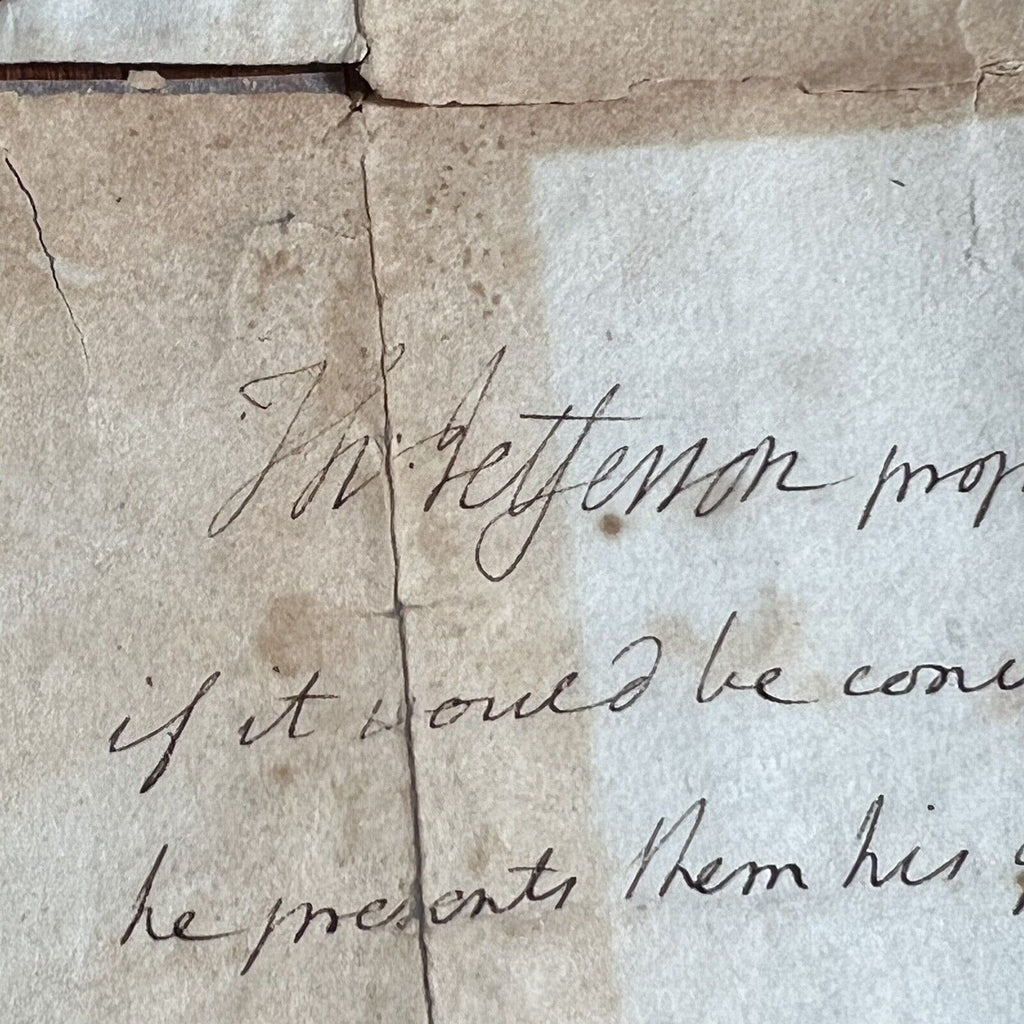 Th: Jefferson prop
if it would be conv
he presents them his